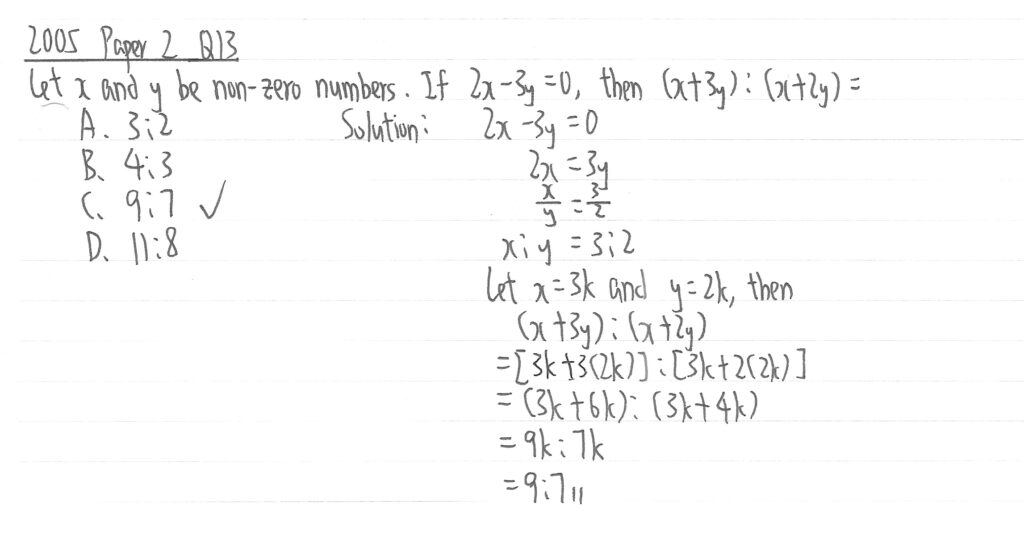 2005 Paper 2 Q13
Let x and y be non-zero numbers. If 2x-3y=0, then (x+3y):(x+2y)=
A. 3:2
B. 4:3
C. 9:7 ✓
D. 11:8
Solution: 2x-3y=0
2x=3y
x/y = 3/2
x:y = 3:2
Let x=3k and y=2k, then
(x+3y):(x+2y)
=[3k+3(2k)]:[3k+2(2k)]
=(3k+6k):(3k+4k)
=9k:7k
=9:7//